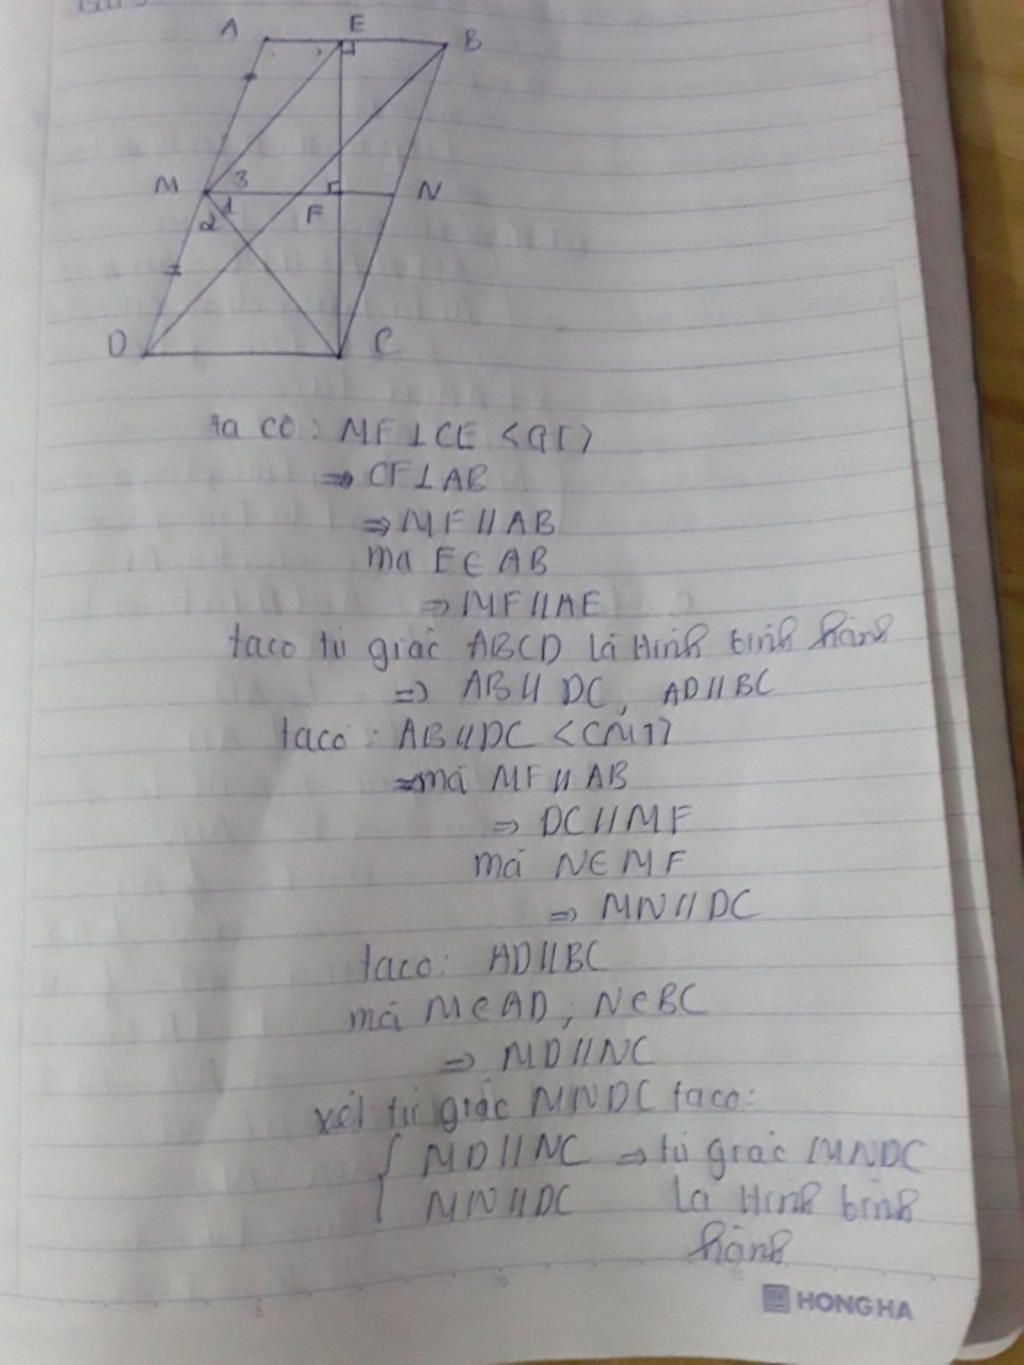 A E B
M 3 N
2 1 F
D C
ta có: MF⊥CE <GT>
⇒ CF⊥AB
⇒ MF//AB
ma E∈AB
⇒ MF//AE
taco tứ giác ABCD là Hình bình hành
⇒ AB//DC, AD//BC
taco: AB//DC <CMT>
⇒ mà MF//AB
⇒ DC//MF
mà N∈MF
⇒ MN//DC
taco: AD//BC
mà M∈AD, N∈BC
⇒ MD//NC
xét tứ giác MNDC taco:
{ MD//NC ⇒ tứ giác MNDC
MN//DC là Hình bình
hành
HONG HA